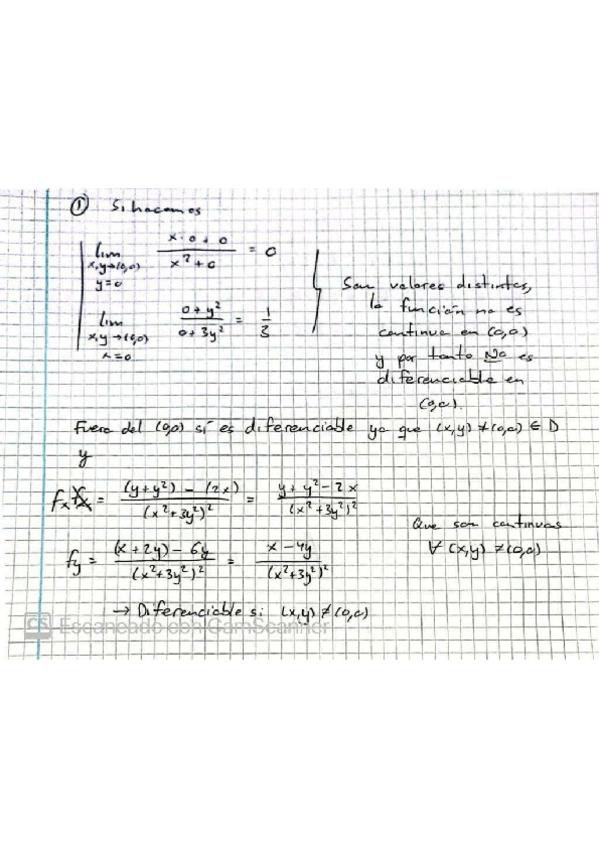 ① Si hacemos
lim x,y→(0,0) y=0 (x·0+0)/(x²+0) = 0
lim x,y→(0,0) x=0 (0+y²)/(0+3y²) = 1/3
Son valores distintos,
la función no es
continua en (0,0)
y por tanto No es
diferenciable en
(0,0).
Fuera del (0,0) sí es diferenciable ya que (x,y) ≠ (0,0) ∈ D
y
fx = ((y+y²) - (2x))/(x²+3y²)² = (y+y²-2x)/(x²+3y²)²
fy = ((x+2y) - 6y)/(x²+3y²)² = (x-4y)/(x²+3y²)²
Que son continuas
∀ (x,y) ≠ (0,0)
→ Diferenciable si (x,y) ≠ (0,0)
CS Escaneado con CamScanner